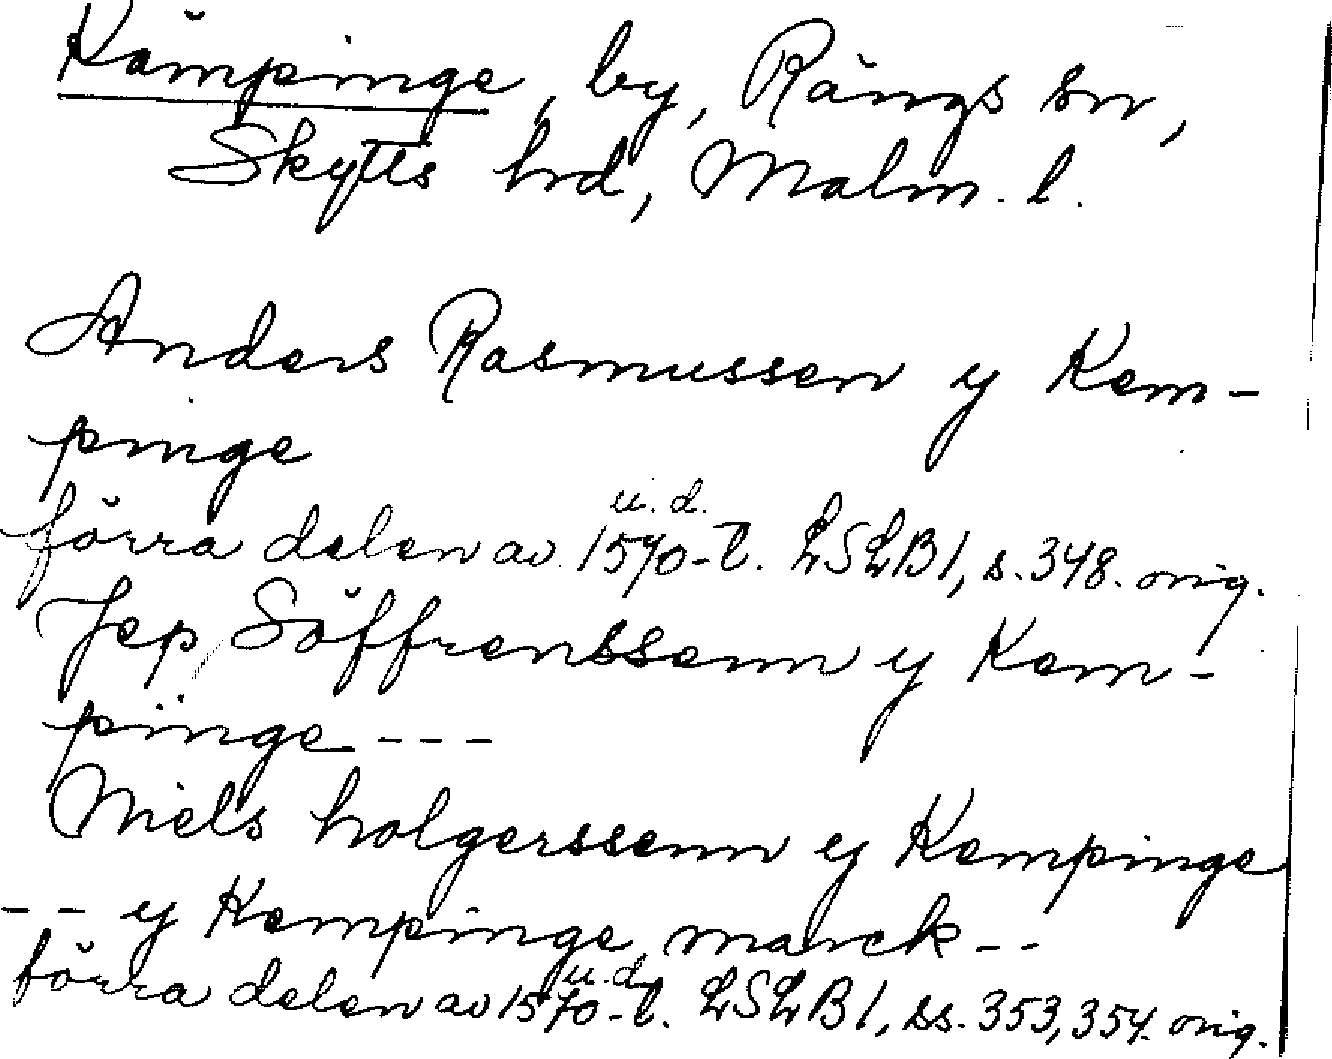 Kämpinge, by, Rängs sn,
Skytts hrd, Malm. l.
Anders Rasmussen y Kem-
pinge
u. d.
förra delen av 1570-t. LSLB1, s. 348. orig.
Jep Söffrenssenn y Kem-
pinge - - -
Niels holgerssenn y Kempinge
- - y Kempinge marck - -
u. d.
förra delen av 1570-t. LSLB1, ss. 353, 354. orig.